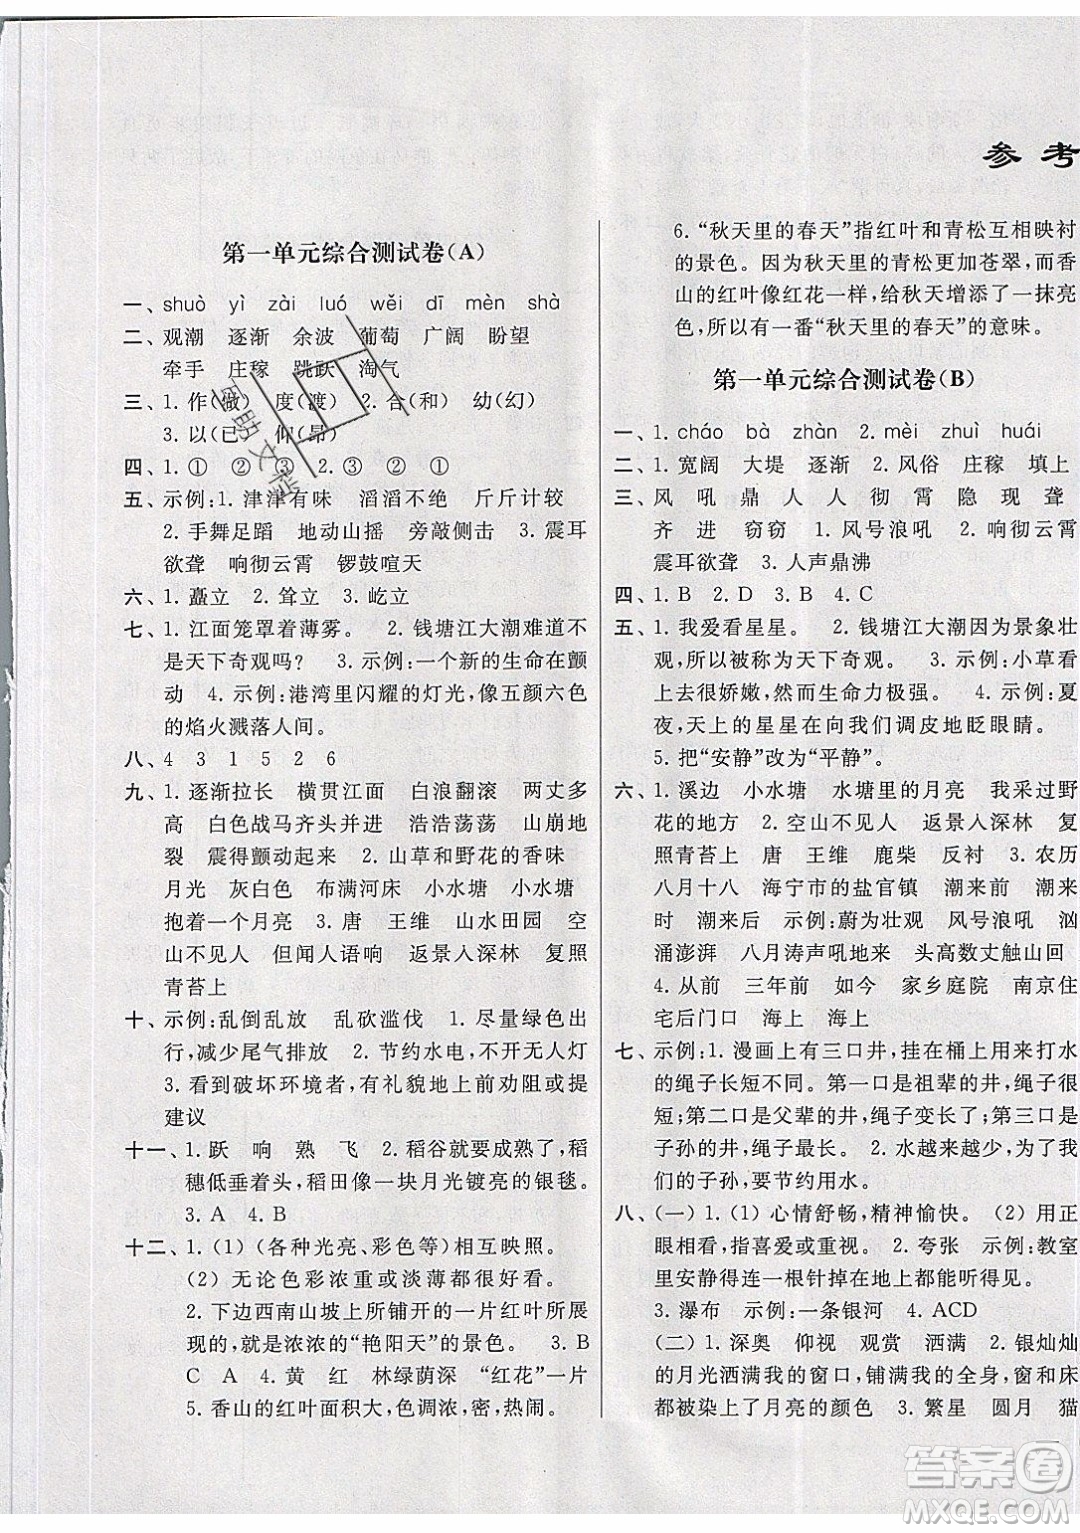 参 考
第一单元综合测试卷(A)
一、shuò yì zài luó wěi dī mèn shà
二、观潮 逐渐 余波 葡萄 广阔 盼望
牵手 庄稼 跳跃 淘气
三、1. 作(做) 度(渡) 2. 合(和) 幼(幻)
3. 以(已) 仰(昂)
四、1. ① ② ③ 2. ② ① ③
五、示例:1. 津津有味 滔滔不绝 斤斤计较
2. 手舞足蹈 地动山摇 旁敲侧击 3. 震耳
欲聋 响彻云霄 锣鼓喧天
六、1. 矗立 2. 耸立 3. 屹立
七、1. 江面笼罩着薄雾。 2. 钱塘江大潮难道不
是天下奇观吗? 3. 示例:一个新的生命在颤
动 4. 示例:港湾里闪耀的灯光,像五颜六色
的焰火溅落人间。
八、4 3 1 5 2 6
九、1. 逐渐拉长 横贯江面 白浪翻滚 两丈多
高 白色战马齐头并进 浩浩荡荡 山崩地
裂 震得颤动起来 2. 山草和野花的香味
月光 灰白色 布满河床 小水塘 小水塘
抱着一个月亮 3. 唐 王维 山水田园 空
山不见人 但闻人语响 返景入深林 复照
青苔上
十、示例:乱倒乱放 乱砍滥伐 1. 尽量绿色出
行,减少尾气排放 2. 节约水电,不开无人灯
3. 看到破坏环境者,有礼貌地上前劝阻或提
建议
十一、1. 跃 响 熟 飞 2. 稻谷就要成熟了,稻
穗低垂着头,稻田像一块月光镀亮的银毯。
3. A 4. B
十二、1. (1) (各种光亮、彩色等)相互映照。
(2) 无论色彩浓重或淡薄都很合适。
2. 下边西南山坡上所铺开的一片红叶所展
现的,就是浓浓的“艳阳天”的景色。 3. B
C A 4. 黄 红 林绿荫深 “红花”一片
5. 香山的红叶面积大,色调浓,密,热闹。
6. “秋天里的春天”指红叶和青松互相映衬
的景色。因为秋天里的青松更加苍翠,而香
山的红叶像红花一样,给秋天增添了一抹亮
色,所以有一番“秋天里的春天”的意味。
第一单元综合测试卷(B)
一、1. cháo bà zhàn 2. mèi zhuì huái
二、1. 宽阔 大堤 逐渐 2. 风俗 庄稼 填上
三、风 吼 鼎 人 人 彻 霄 隐 现 聋
齐 进 窃窃 1. 风号浪吼 2. 响彻云霄
震耳欲聋 3. 人声鼎沸
四、1. B 2. D 3. B 4. C
五、1. 我爱看星星。 2. 钱塘江大潮因为景象壮
观,所以被称为天下奇观。 3. 示例:小草看
上去很娇嫩,其实生命力极强。 4. 示例:夏
夜,天上的星星在向我们调皮地眨眼睛。
5. 把“安静”改为“平静”。
六、1. 溪边 小水塘 水塘里的月亮 我采过野
花的地方 2. 空山不见人 返景入深林 复
照青苔上 唐 王维 鹿柴 反衬 3. 农历
八月十八 海宁市的盐官镇 潮来前 潮来
时 潮来后 示例:蔚为壮观 风号浪吼 汹
涌澎湃 八月涛声吼地来 头高数丈触山回
4. 从前 三年前 如今 家乡庭院 南京住
宅后门口 海上 海上
七、示例:1. 漫画上有三口井,挂在桶上用来打水
的绳子长短不同。第一口是祖辈的井,绳子
短;第二口是父辈的井,绳子变长了;第三口是
子孙的井,绳子最长。 2. 水越来越少,为了我
们的子孙,要节约用水。
八、(一) 1. (1) 心情舒畅,精神愉快。 (2) 用正
眼看,指喜爱或重视。 2. 夸张 示例:教室
里安静得连一根针掉在地上都能听见。
3. 瀑布 示例:一条银河 4. ACD
(二) 1. 深奥 仰视 观赏 洒满 2. 银灿灿
的月光洒满我的窗口,铺满我的房间和床
都被染上了月亮的颜色 3. 繁星 圆月 猫
答案圈
MXQE.COM